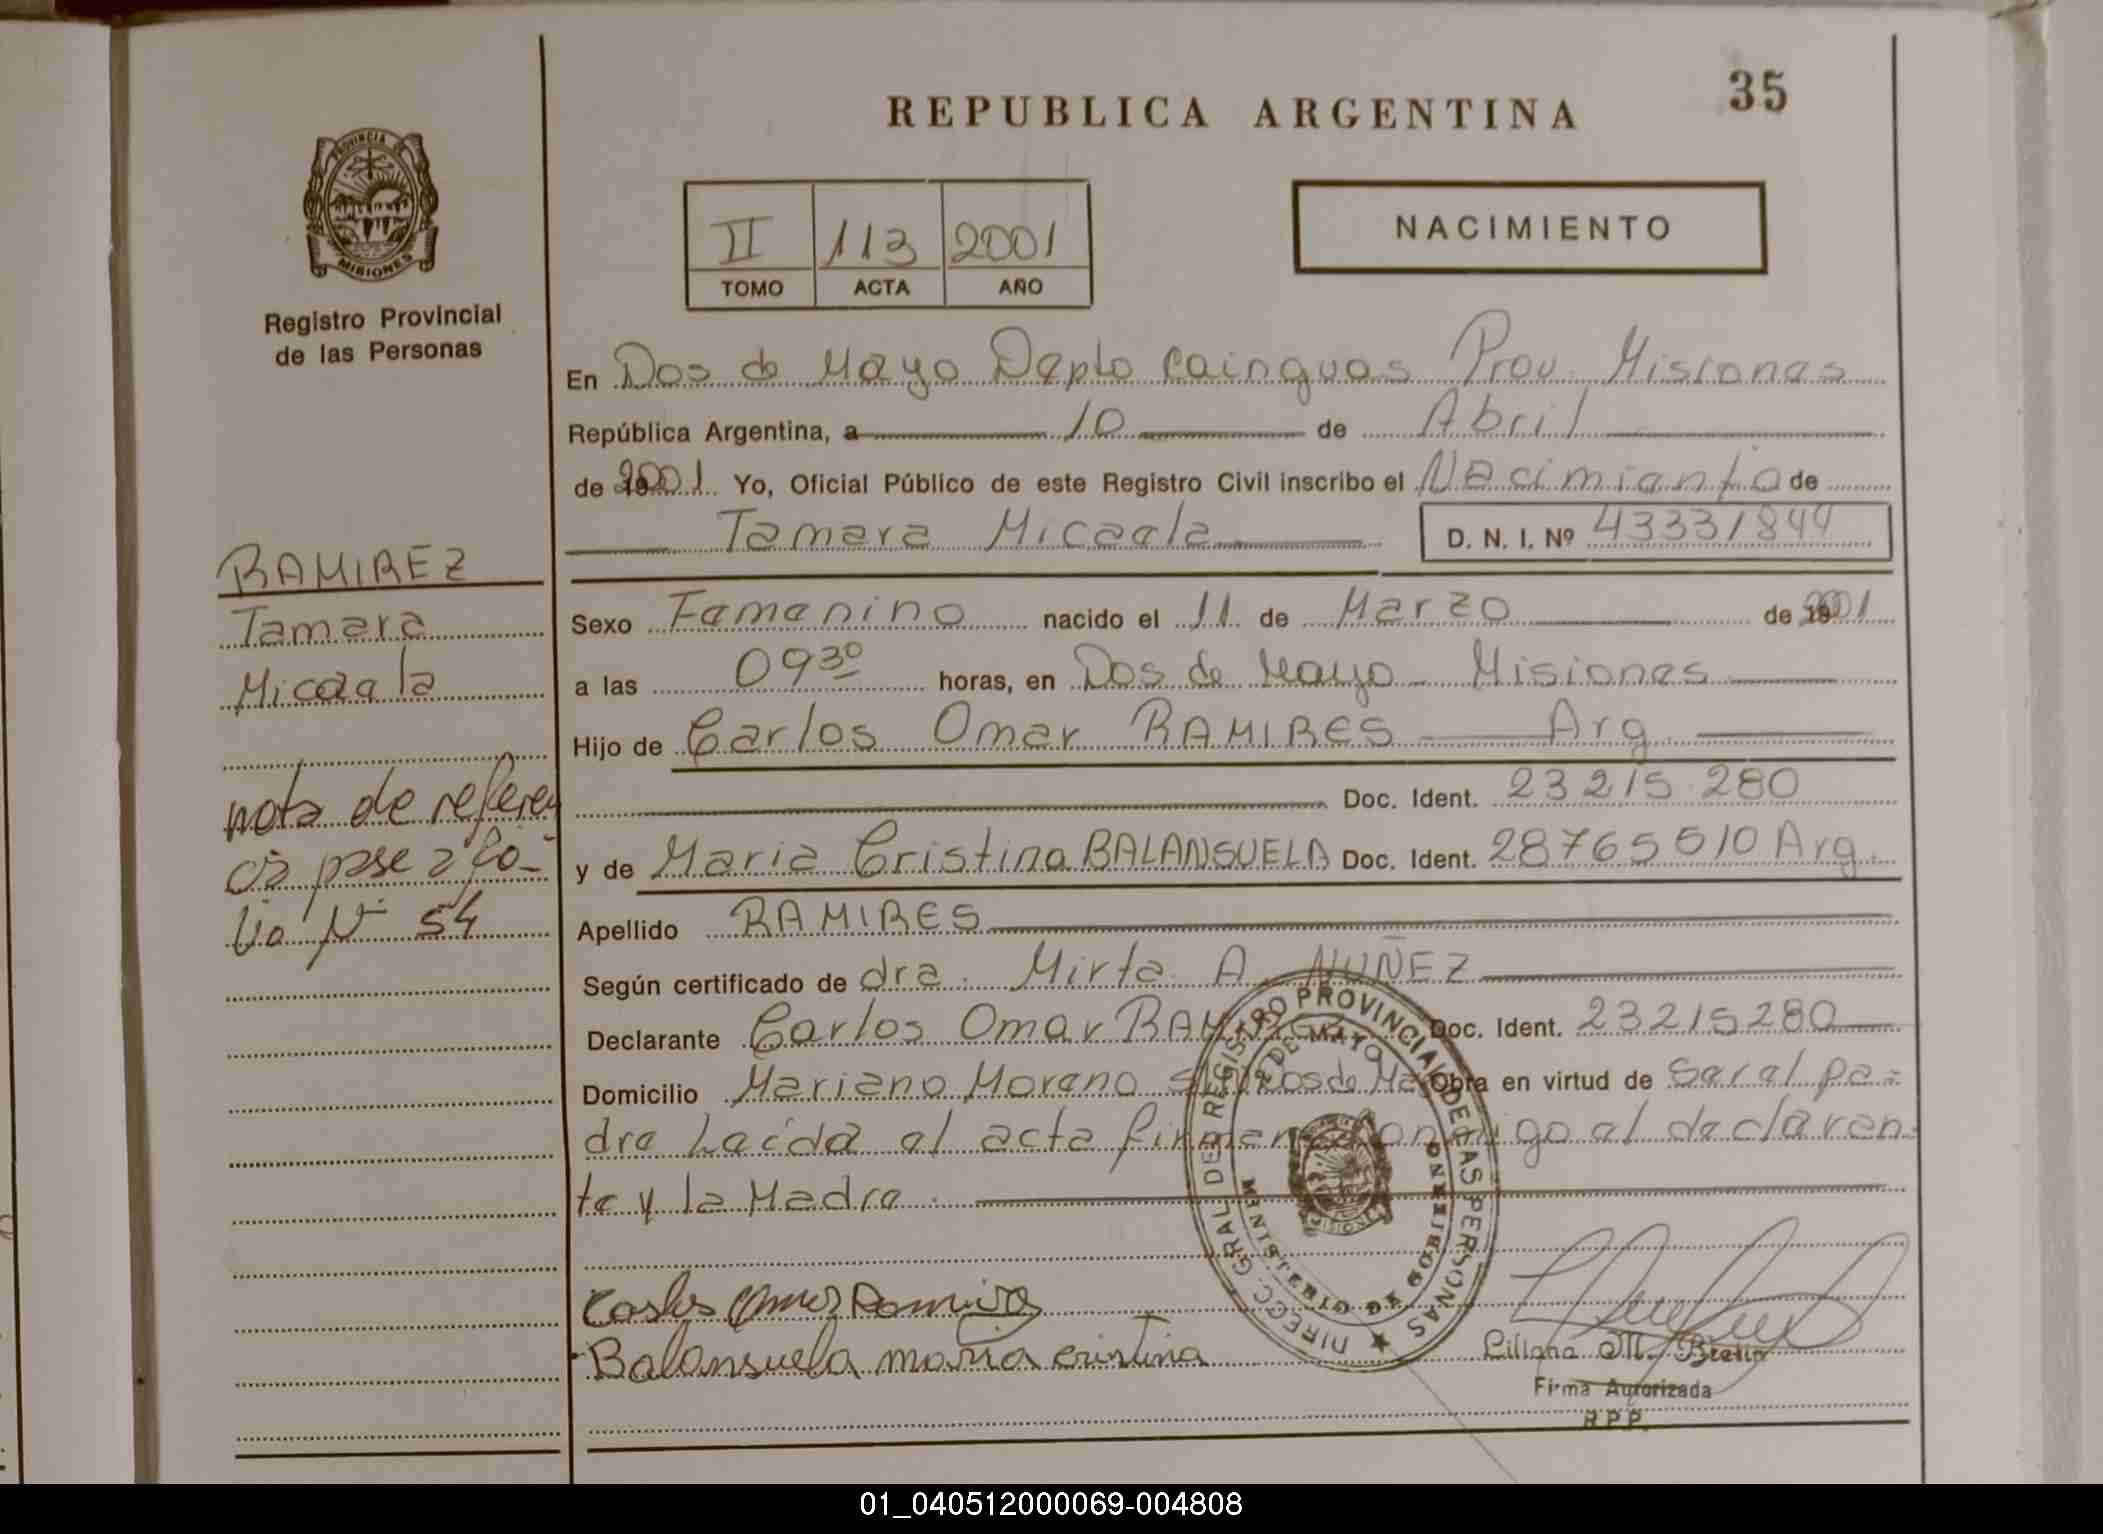 REPUBLICA ARGENTINA
35
PROVINCIA DE
MISIONES
Registro Provincial
de las Personas
II 113 2001
TOMO ACTA AÑO
NACIMIENTO
En Dos de Mayo Depto Cainguas Prov. Misiones
República Argentina, a 10 de Abril
de 2001 Yo, Oficial Público de este Registro Civil inscribo el Nacimiento de
Tamara Micaela D. N. I. Nº 43331844
RAMIREZ
Tamara
Micaela
nota de referen
cia pase a fo-
lio Nº 54
Sexo Femenino nacido el 11 de Marzo de 2001
a las 09³⁰ horas, en Dos de Mayo - Misiones
Hijo de Carlos Omar RAMIRES Arg
Doc. Ident. 23215280
y de Maria Cristina BALANSUELA Doc. Ident. 28765510 Arg.
Apellido RAMIRES
Según certificado de dra. Mirta A. NUÑEZ
Declarante Carlos Omar Doc. Ident. 23215280
Domicilio Mariano Moreno Dos de Obra en virtud de Ser el pa-
dre Leída el acta al declaran-
te y la Madre.
DIRECC. GRAL DEL REGISTRO PROVINCIAL DE LAS PERSONAS
2 DE MAYO
Balansuela maria cristina
Liliana M.
Firma Autorizada
R.P.P.
01_040512000069-004808